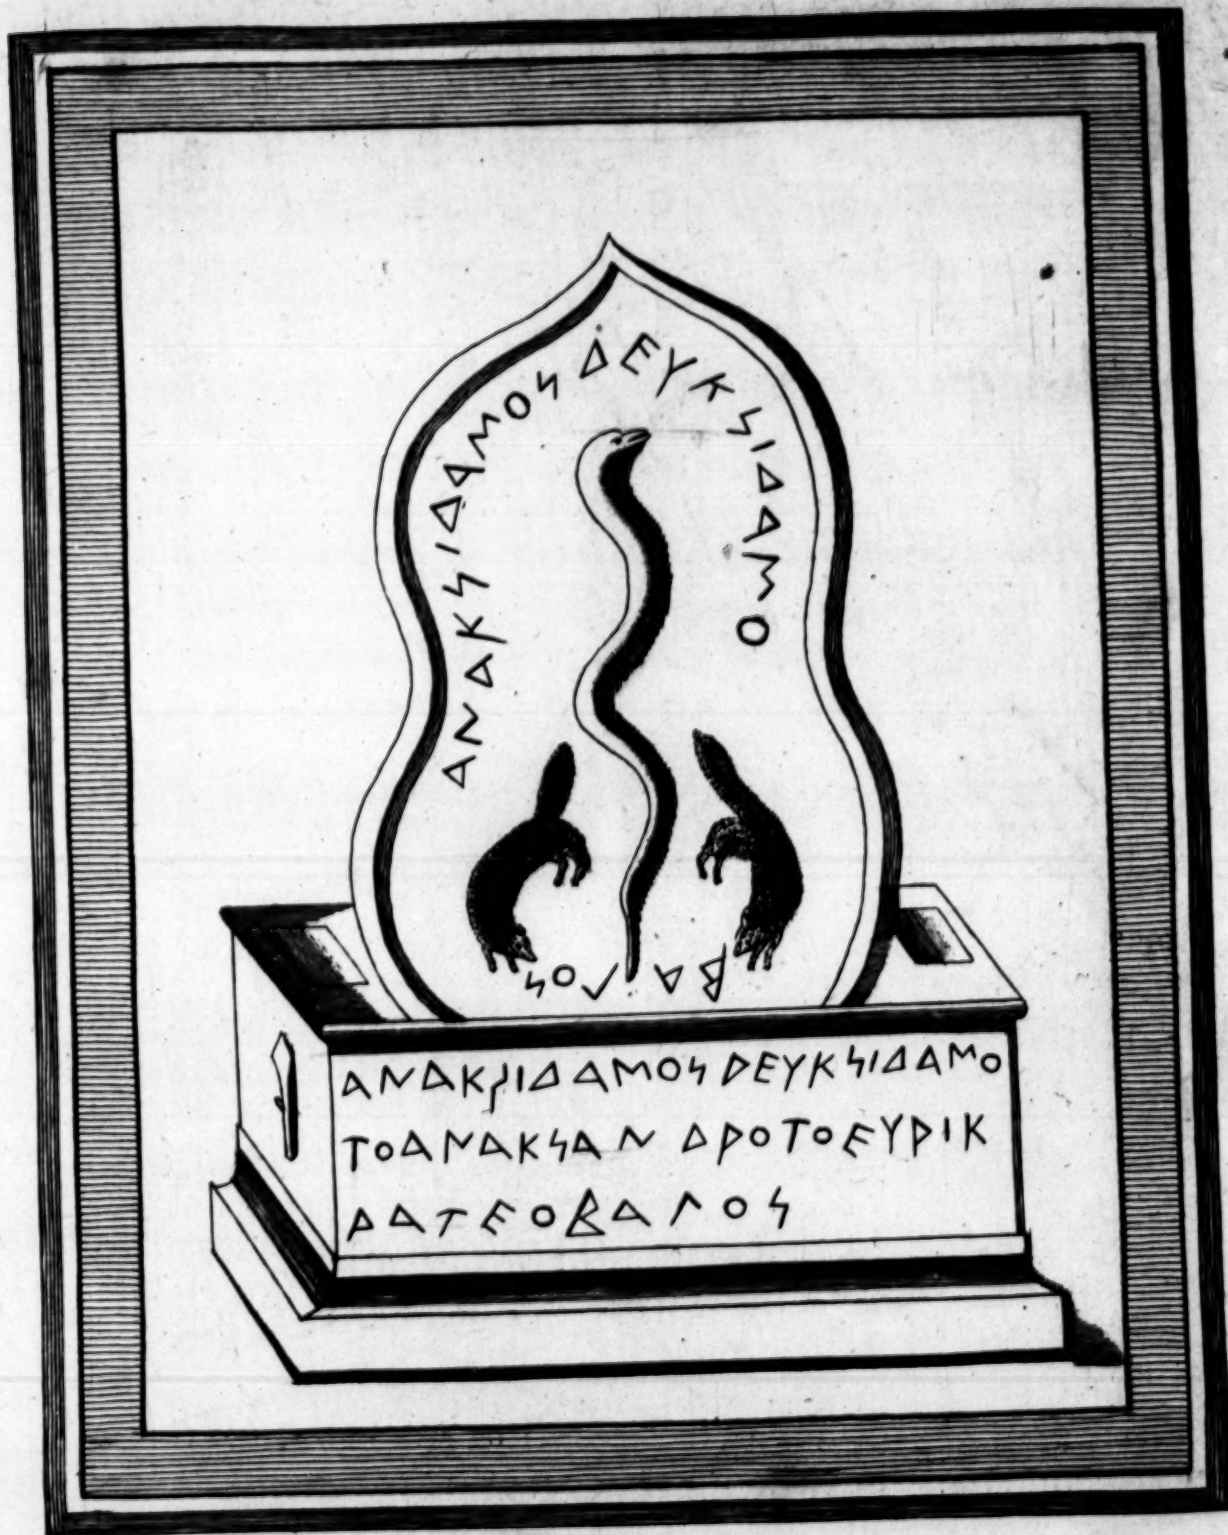 ΑΝΑΚSΙΔΑΜΟS ΔΕΥΚSΙΔΑΜΟ
ΒΑΓΟS
ΑΝΑΚSΙΔΑΜΟS DΕΥΚSΙΔΑΜΟ
ΤΟΑΝΑΚSΑΝ ΔΡΟΤΟΕΥΡΙΚ
ΡΑΤΕΟΒΑΓΟS